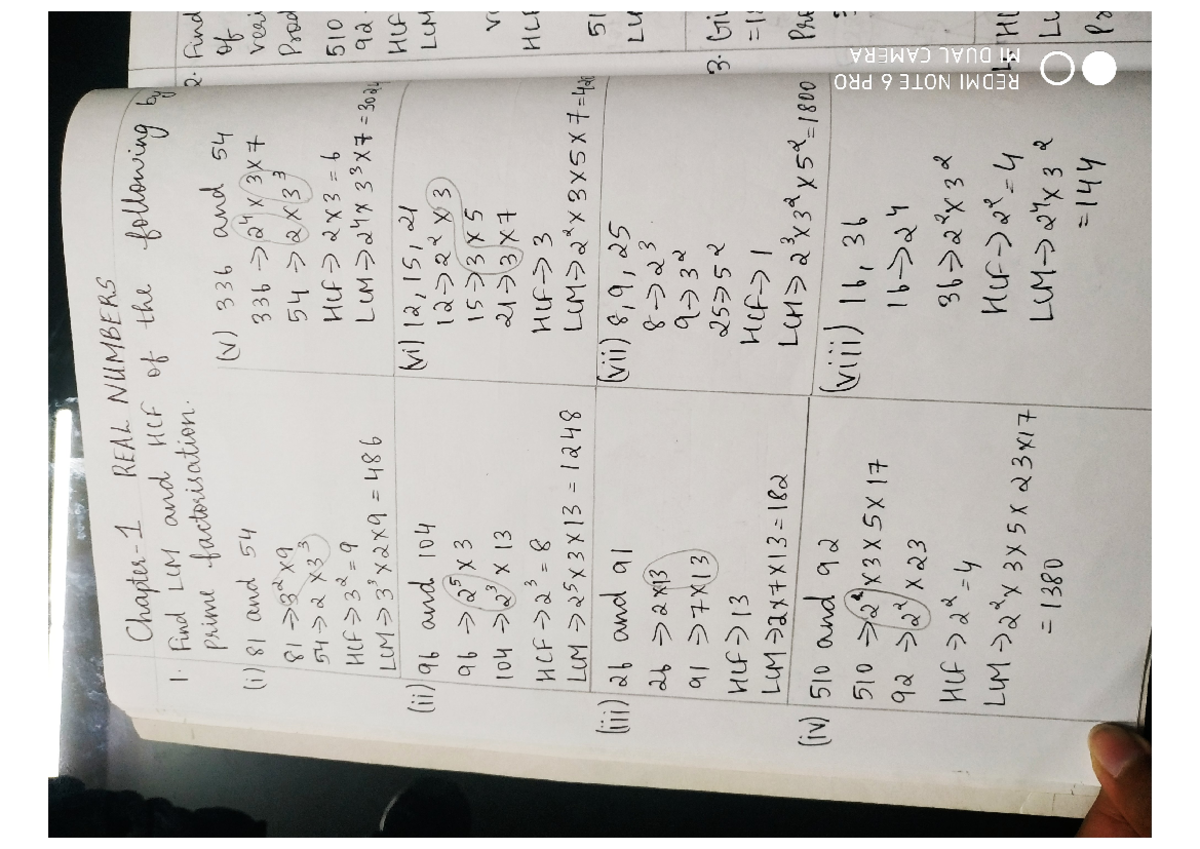 Chapter-1 REAL NUMBERS
1. Find LCM and HCF of the following by
prime factorisation.
(i) 81 and 54
81 → 3² x 9
54 → 2 x 3³
HCF → 3² = 9
LCM → 3³ x 2 x 9 = 486
(ii) 96 and 104
96 → 2⁵ x 3
104 → 2³ x 13
HCF → 2³ = 8
LCM → 2⁵ x 3 x 13 = 1248
(iii) 26 and 91
26 → 2 x 13
91 → 7 x 13
HCF → 13
LCM → 2 x 7 x 13 = 182
(iv) 510 and 92
510 → 2² x 3 x 5 x 17
92 → 2² x 23
HCF → 2² = 4
LCM → 2² x 3 x 5 x 23 x 17
= 1380
(v) 336 and 54
336 → 2⁴ x 3 x 7
54 → 2 x 3³
HCF → 2 x 3 = 6
LCM → 2⁴ x 3³ x 7 = 3024
(vi) 12, 15, 21
12 → 2² x 3
15 → 3 x 5
21 → 3 x 7
HCF → 3
LCM → 2² x 3 x 5 x 7 = 420
(vii) 8, 9, 25
8 → 2³
9 → 3²
25 → 5²
HCF → 1
LCM → 2³ x 3² x 5² = 1800
(viii) 16, 36
16 → 2⁴
36 → 2² x 3²
HCF → 2² = 4
LCM → 2⁴ x 3²
= 144
2. Find
of
veri
Prod
510
92
HCF
LCM
HCF
51
3. Gi
= 1
Pr
REDMI NOTE 6 PRO
MI DUAL CAMERA